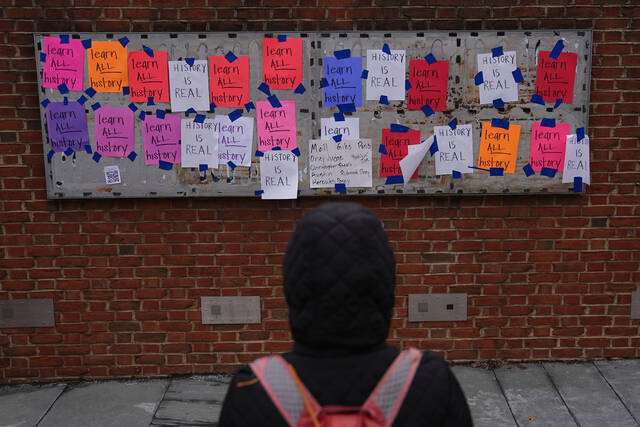 learn
ALL
history
learn
ALL
history
learn
ALL
history
HISTORY
IS
REAL
learn
ALL
history
learn
ALL
history
learn
ALL
history
HISTORY
IS
REAL
learn
ALL
history
HISTORY
IS
REAL
learn
ALL
history
learn
ALL
history
learn
ALL
history
learn
ALL
history
HISTORY
IS
REAL
learn
ALL
history
learn
ALL
history
HISTORY
IS REAL
Moll Giles Paris
Oney Judge
Austin
learn
ALL
history
HISTORY
IS
REAL
learn
ALL
history
learn
ALL
history
HISTORY
IS
REAL